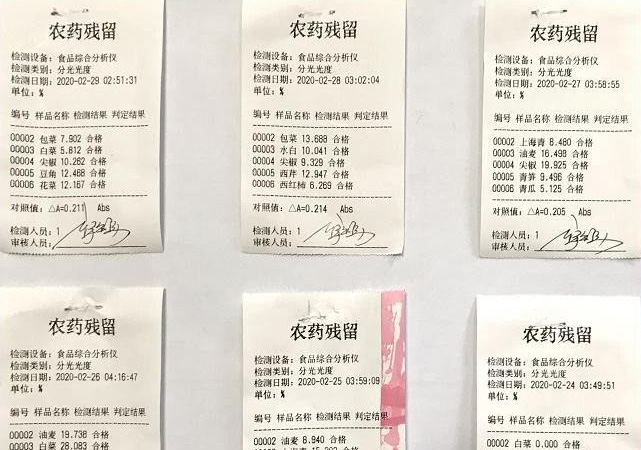 农药残留
检测设备: 食品综合分析仪
检测类别: 分光光度
检测日期: 2020-02-29 02:51:31
单位: %
编号 样品名称 检测结果 判定结果
00002 包菜 7.902 合格
00003 白菜 5.812 合格
00004 尖椒 10.262 合格
00005 豆角 12.468 合格
00006 花菜 12.167 合格
对照值: △A=0.211 Abs
检测人员: 1
审核人员:
农药残留
检测设备: 食品综合分析仪
检测类别: 分光光度
检测日期: 2020-02-28 03:02:04
单位: %
编号 样品名称 检测结果 判定结果
00002 包菜 13.688 合格
00003 水白 10.041 合格
00004 尖椒 9.329 合格
00005 西芹 12.947 合格
00006 西红柿 6.269 合格
对照值: △A=0.214 Abs
检测人员: 1
审核人员:
农药残留
检测设备: 食品综合分析仪
检测类别: 分光光度
检测日期: 2020-02-27 03:58:55
单位: %
编号 样品名称 检测结果 判定结果
00002 上海青 8.480 合格
00003 油麦 16.498 合格
00004 尖椒 19.925 合格
00005 青笋 9.496 合格
00006 青瓜 5.125 合格
对照值: △A=0.205 Abs
检测人员: 1
审核人员:
农药残留
检测设备: 食品综合分析仪
检测类别: 分光光度
检测日期: 2020-02-26 04:16:47
单位: %
编号 样品名称 检测结果 判定结果
00002 油麦 19.738 合格
00003 白菜 28.083 合格
农药残留
检测设备: 食品综合分析仪
检测类别: 分光光度
检测日期: 2020-02-25 03:59:09
单位: %
编号 样品名称 检测结果 判定结果
00002 油麦 8.940 合格
农药残留
检测设备: 食品综合分析仪
检测类别: 分光光度
检测日期: 2020-02-24 03:49:51
单位: %
编号 样品名称 检测结果 判定结果
00002 白菜 0.000 合格